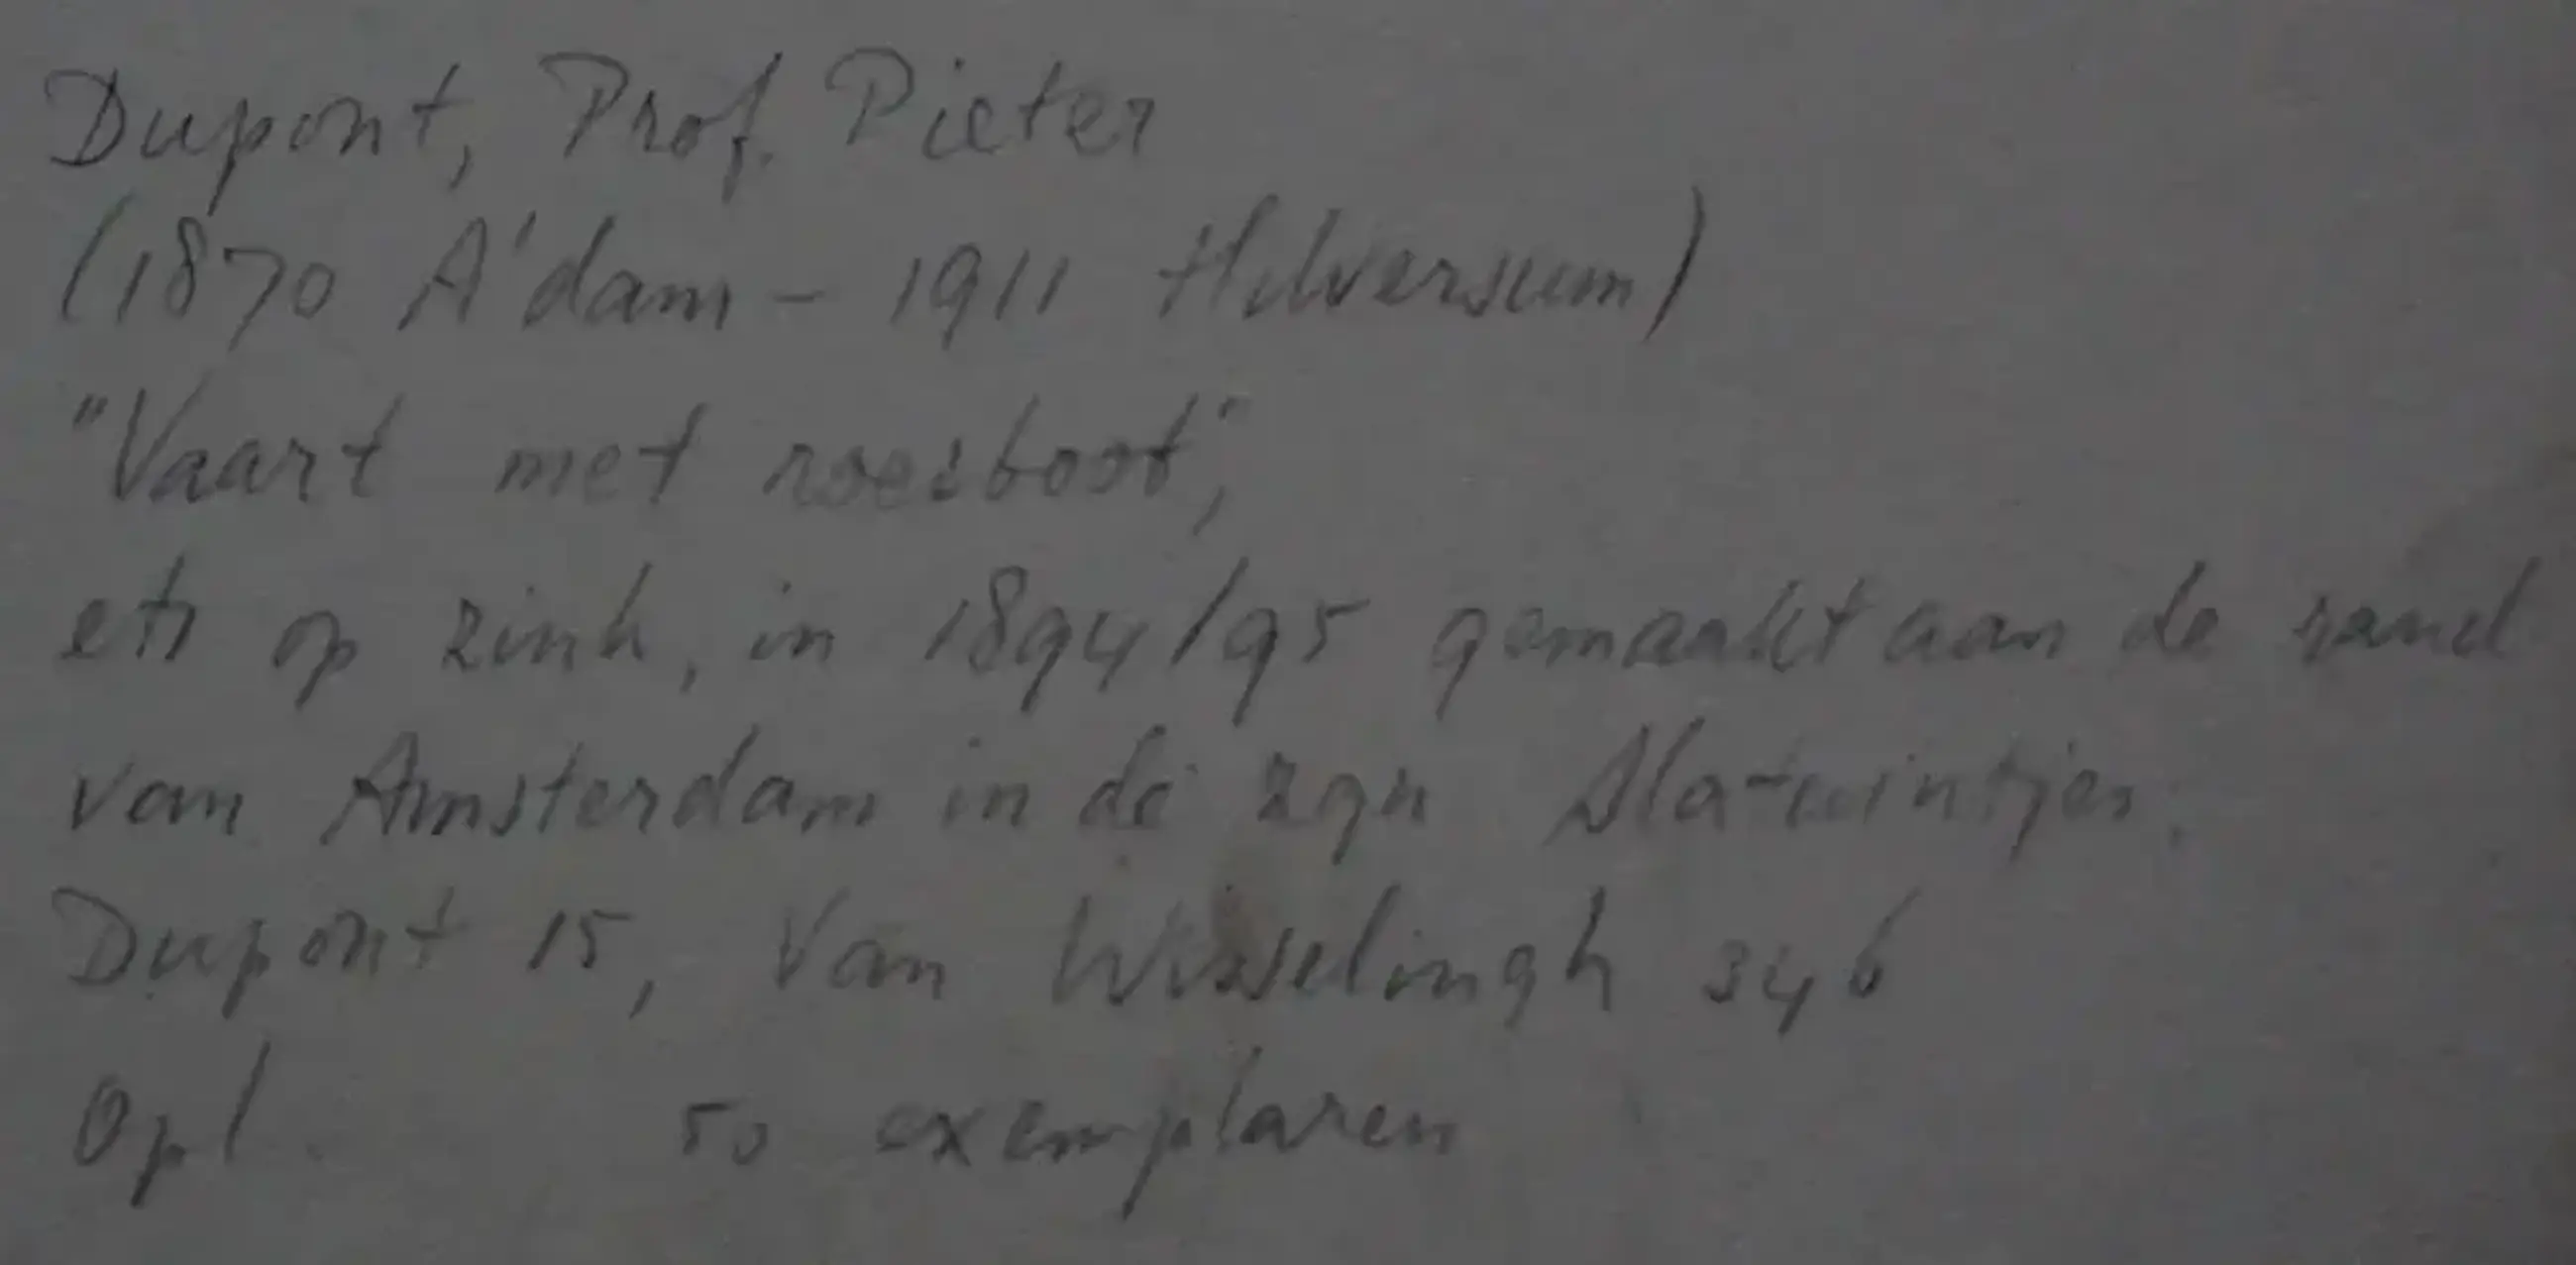 Dupont, Prof. Pieter
(1870 A'dam - 1911 Hilversum)
"Vaart met roeiboot",
ets op zink, in 1894/95 gemaakt aan de rand
van Amsterdam in de zgn Sla-tuintjes.
Dupont 15, Van Wisselingh 346
Opl. 50 exemplaren